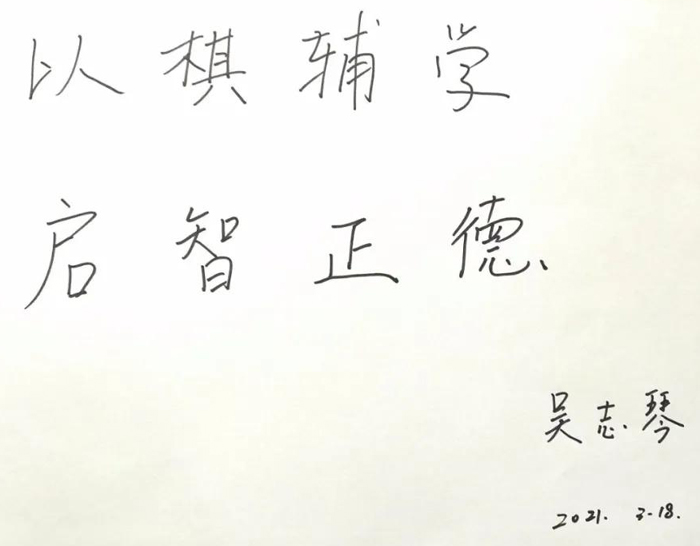 以棋辅学
启智正德
吴志琴
2021. 3-18.